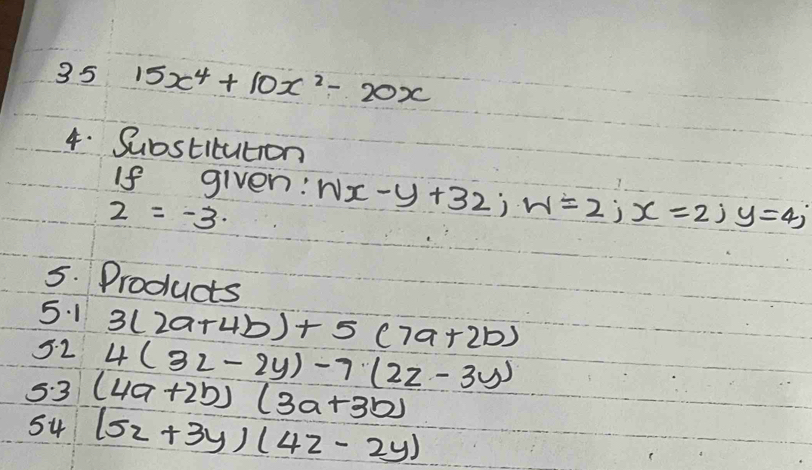 35 15x⁴ + 10x² - 20x
4. Substitution
If given: wx - y + 3z; w = 2; x = 2; y = 4;
z = -3.
5. Products
5.1 3(2a+4b) + 5 (7a+2b)
5.2 4 (3z - 2y) - 7 (2z - 3y)
5.3 (4a +2b) (3a+3b)
54 (5z + 3y) (4z - 2y)